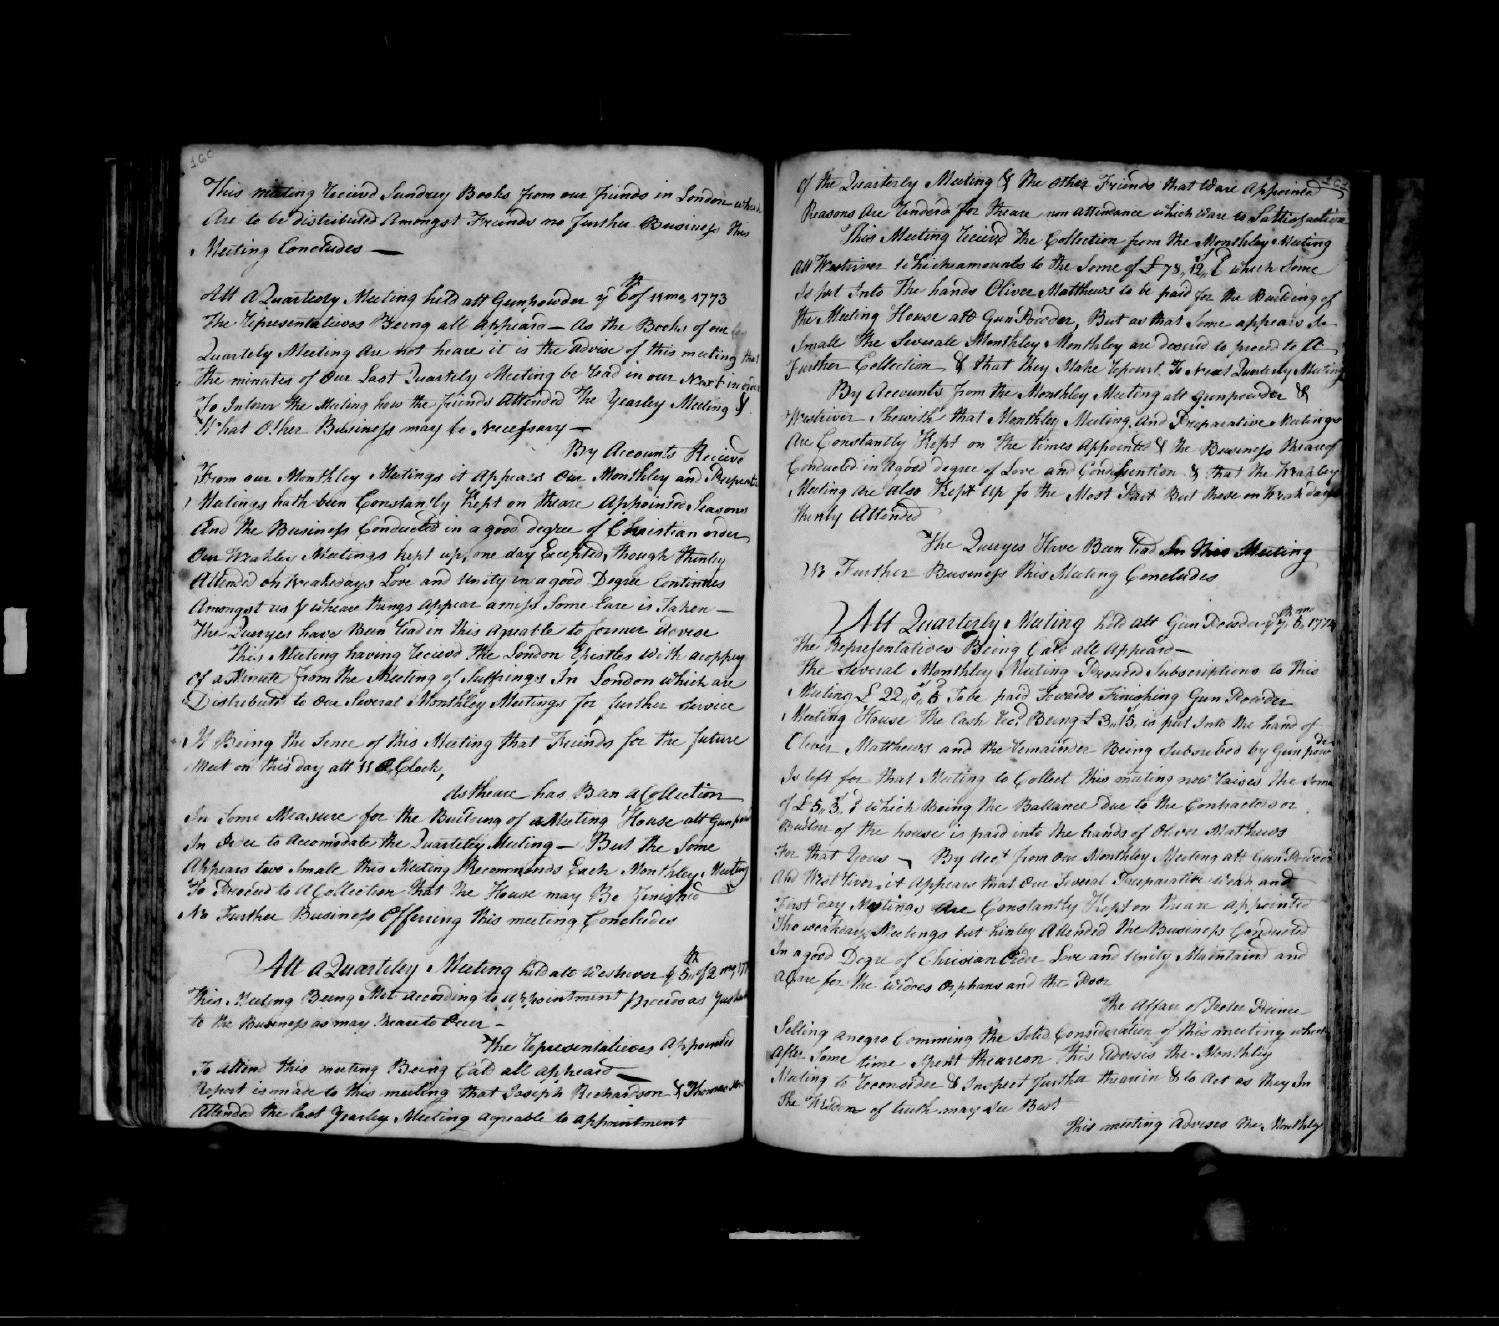 160
This meeting Reciev'd Sundrey Books from our friends in London which
Are to be distributed Amongst Freinds no further Business this
Meeting Concludes —
Att A Quarterly Meeting held att Gunpowder ye 6th of 11 mo 1773
The Representatives Being all appeard — As the Books of our
Quartely Meeting Are not heare it is the advise of this meeting that
The minutes of Our Last Quartely Meeting be read in our Next in order
To Inform the Meeting how the friends Attended The Yearley Meeting &
What Other Business may be Necessary —
By Accounts Recievd
From our Monthley Meetings it Appears Our Monthley and Preparative
Meetings hath been Constantly Kept on theare Appointed Seasons
And the Business Conducted in a good degree of Christian order
Our Weakley Meetings kept up, one day Excepted, though thinley
Attended on Weakedays Love and Unity in a good Degree Continues
Amongst us & wheare things appear amiss Some Care is Taken —
The Queryes have Been Read in this Agreable to former advise
This Meeting having Recievd the London Epistles with a coppey
of a Minute from the Meeting of Suffrings In London which are
Distributed to Our Several Monthley Meetings for further service
It Being the Sence of this Meeting that Freinds for the future
Meet on this day att 11 O,Clock,
As theare has Ben a Collection
In Some Measure for the Building of a Meeting House att Gunpowder
In Order to Accomodate the Quarteley Meeting — But the Some
Appears two Smale this Meeting Recommends Each Monthley Meeting
To Proceed to A Collection that the House may Be Finished
No Further Business Offering this meeting Concludes
Att a Quarteley Meeting held att Westriver ye 5th of 2 mo, 177
This Meeting Being Met according to appointment proceeds as
to the Business as may Neare to Ocur —
The Representatives Appointed
To attend this meeting Being Cald all appeard —
Report is made to this meeting that Joseph Richardson & Thomas
Attended the Last Yearley Meeting agreable to appointment
of the Quarterly Meeting & the other Friends that Ware Appointed
Reasons Are Renderd for theare non attendance which Ware to Sattisfaction
This Meeting Recievd the Collection from the Monthley Meeting
att Westriver which amounts to the Some of £78,,12,, which Some
Is put Into The hands Oliver Matthews to be paid for the Building of
the Meeting House att Gun Powder, But as that Some appears to
Smale the Severale Monthley Monthley are desired to proced to A
Further Collection & that they Make Report To Next Quarterly Meeting
By Accounts from the Monthley Meeting att Gunpowder &
Westriver Shewith that Monthley Meeting And Preparative Meetings
Are Constantly Kept on the times Appointed & the Business theareof
Conducted in a good degree of Love and Condesention & that the Weakley
Meeting are also Kept Up for the Most Part But those on Weak days
thinly Attended
The Queryes Have Been Read In this Meeting
No Further Business this Meeting Concludes
Att Quarterly Meeting held att Gun Powder ye 7, 5 mo, 1774
The Representatives Being Cald all Appeard —
The several Monthley Meeting Produced Subscriptions to this
Meeting £22,,0,,6 To be paid Towards Finishing Gun Powder
Meeting House the Cash Recd Being £3,,15, is put Into the hand of
Oliver Matthews and the remainder Being Subscribed by Gunpowder
Is left for that Meeting to Collect This meeting now Raises the Some
of £5,,3,, which Being the Ballance due to the Contractor or
Builder of the house is paid into the hands of Oliver Mathews
For that Youse — By Acct from Our Monthley Meeting att Gun Powder
And West River it Appears that Our Several Preparative Weak and
First day Meetings are Constantly Kept on theare appointed
Tho weakdays Meetings but thinley Attended the Business Conducted
In a good Degre of Christian Order Love and Unity Maintaind and
a Care for the Widows Orphans and the Poor
The Affare of Peter Prince
Selling a negro Comming the Solid Consideration of this meeting which
After Some time Spent theareon this Advises the Monthley
Meeting to Reconsider & Inspect further therein & to Act as they In
The Wisdom of truth may See Best
This meeting Advises the Monthley